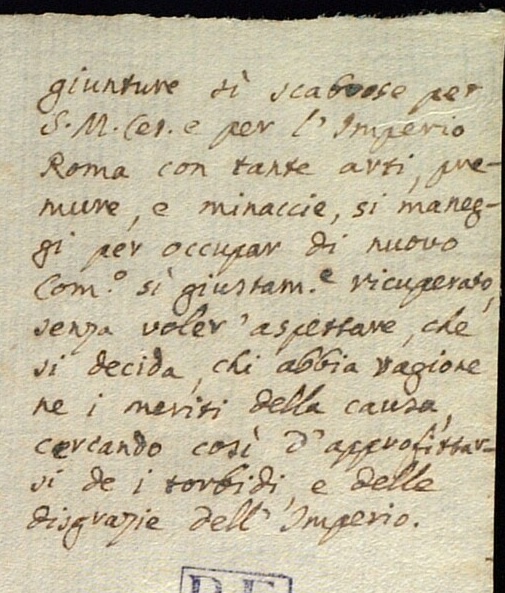 giunture sì scabrose per
S. M. Ces. e per l'Imperio
Roma con tante arti, pre-
mure, e minaccie, si maneg-
gi per occupar di nuovo
Com.º sì giustam.e ricuperato,
senza voler' aspettare, che
si decida, chi abbia ragione
ne i meriti della causa,
cercando così d'approfittar-
si de i torbidi, e delle
disgrazie dell'Imperio.